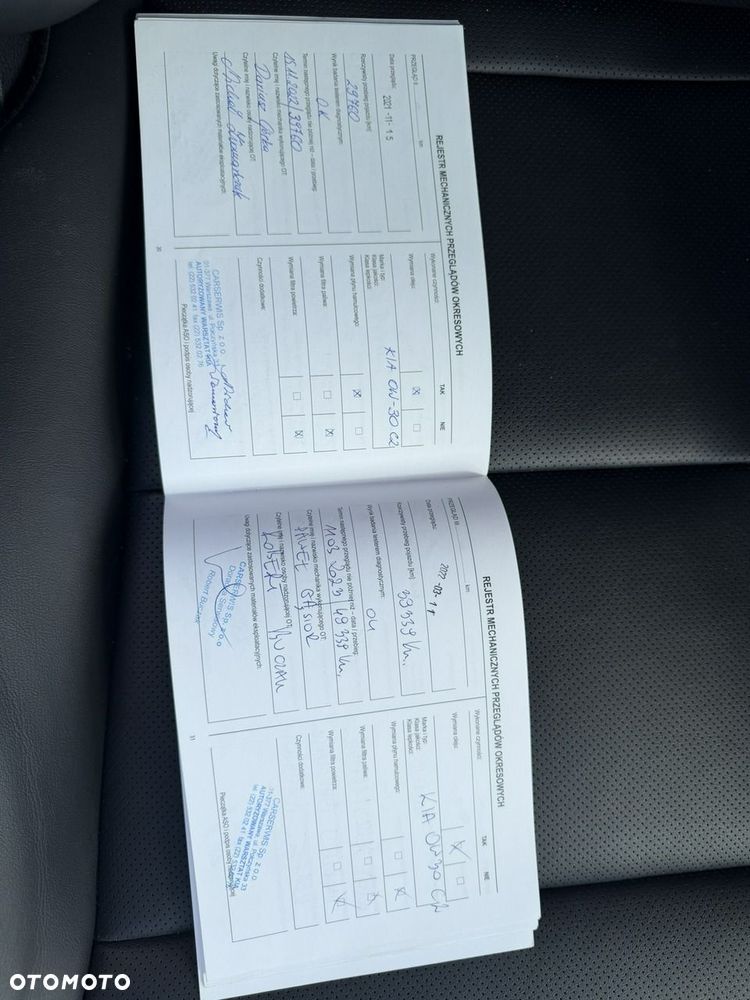 REJESTR MECHANICZNYCH PRZEGLĄDÓW OKRESOWYCH
PRZEGLĄD II km
Data przeglądu: 2021-11-15
Rzeczywisty przebieg pojazdu [km]
29760
Wynik badania testerem diagnostycznym:
OK
Termin następnego przeglądu nie później niż – data i przebieg:
Czytelne imię i nazwisko mechanika wykonującego OT:
Dariusz
Czytelne imię i nazwisko osoby nadzorującej OT:
Michał
Uwagi dotyczące zastosowanych materiałów eksploatacyjnych:
30
Wykonane czynności: TAK NIE
Wymiana oleju:
Marka i typ:
Klasa jakości:
Klasa lepkości:
KIA OW-30 C2
Wymiana płynu hamulcowego:
Wymiana filtra paliwa:
Wymiana filtra powietrza:
Czynności dodatkowe:
CARSERWIS Sp. z o.o.
AUTORYZOWANY WARSZTAT KIA
tel. (22) 532 02 41 fax (22) 532 02 76
Pieczątka ASO i podpis osoby nadzorującej
REJESTR MECHANICZNYCH PRZEGLĄDÓW OKRESOWYCH
PRZEGLĄD III km
Data przeglądu:
Rzeczywisty przebieg pojazdu [km]
39339 km.
Wynik badania testerem diagnostycznym:
Termin następnego przeglądu nie później niż – data i przebieg:
49339 km.
Czytelne imię i nazwisko mechanika wykonującego OT:
PAWEŁ GĄSIOR
Czytelne imię i nazwisko osoby nadzorującej OT:
ROBERT
Uwagi dotyczące zastosowanych materiałów eksploatacyjnych:
CARSERWIS Sp. z o.o.
Doradca Serwisowy
Robert
31
Wykonane czynności: TAK NIE
Wymiana oleju:
Marka i typ:
Klasa jakości:
Klasa lepkości:
KIA OW30 C2
Wymiana płynu hamulcowego:
Wymiana filtra paliwa:
Wymiana filtra powietrza:
Czynności dodatkowe:
CARSERWIS Sp. z o.o.
AUTORYZOWANY WARSZTAT KIA
Pieczątka ASO i podpis osoby nadzorującej
OTOMOTO